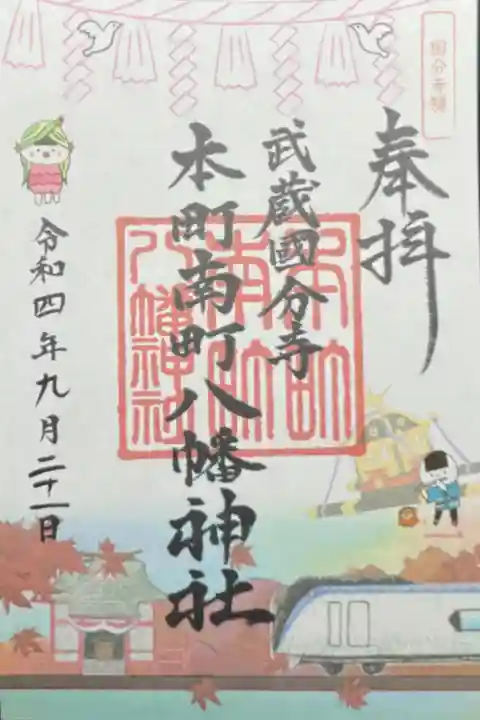 奉拝
武蔵國分寺
本町南町八幡神社
令和四年九月二十一日
本町
南町
八幡神社